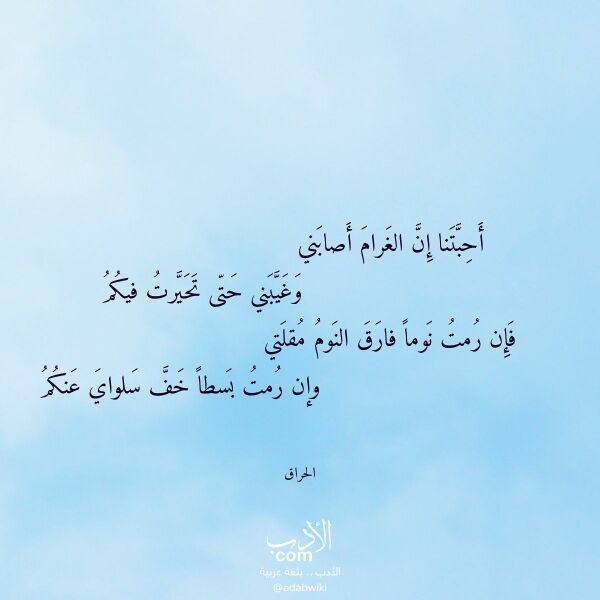 أَحِبَّتَنا إِنَّ الغَرامَ أَصابَني
وَغَيَّبَني حَتّى تَحَيَّرتُ فيكُمُ
فَإِن رُمتُ نَوماً فارَقَ النَومُ مُقلَتي
وإن رُمتُ بَسطاً خَفَّ سَلوايَ عَنكُمُ
الحراق
الأدب
com
الأدب .. بلغة عربية
@adabwiki